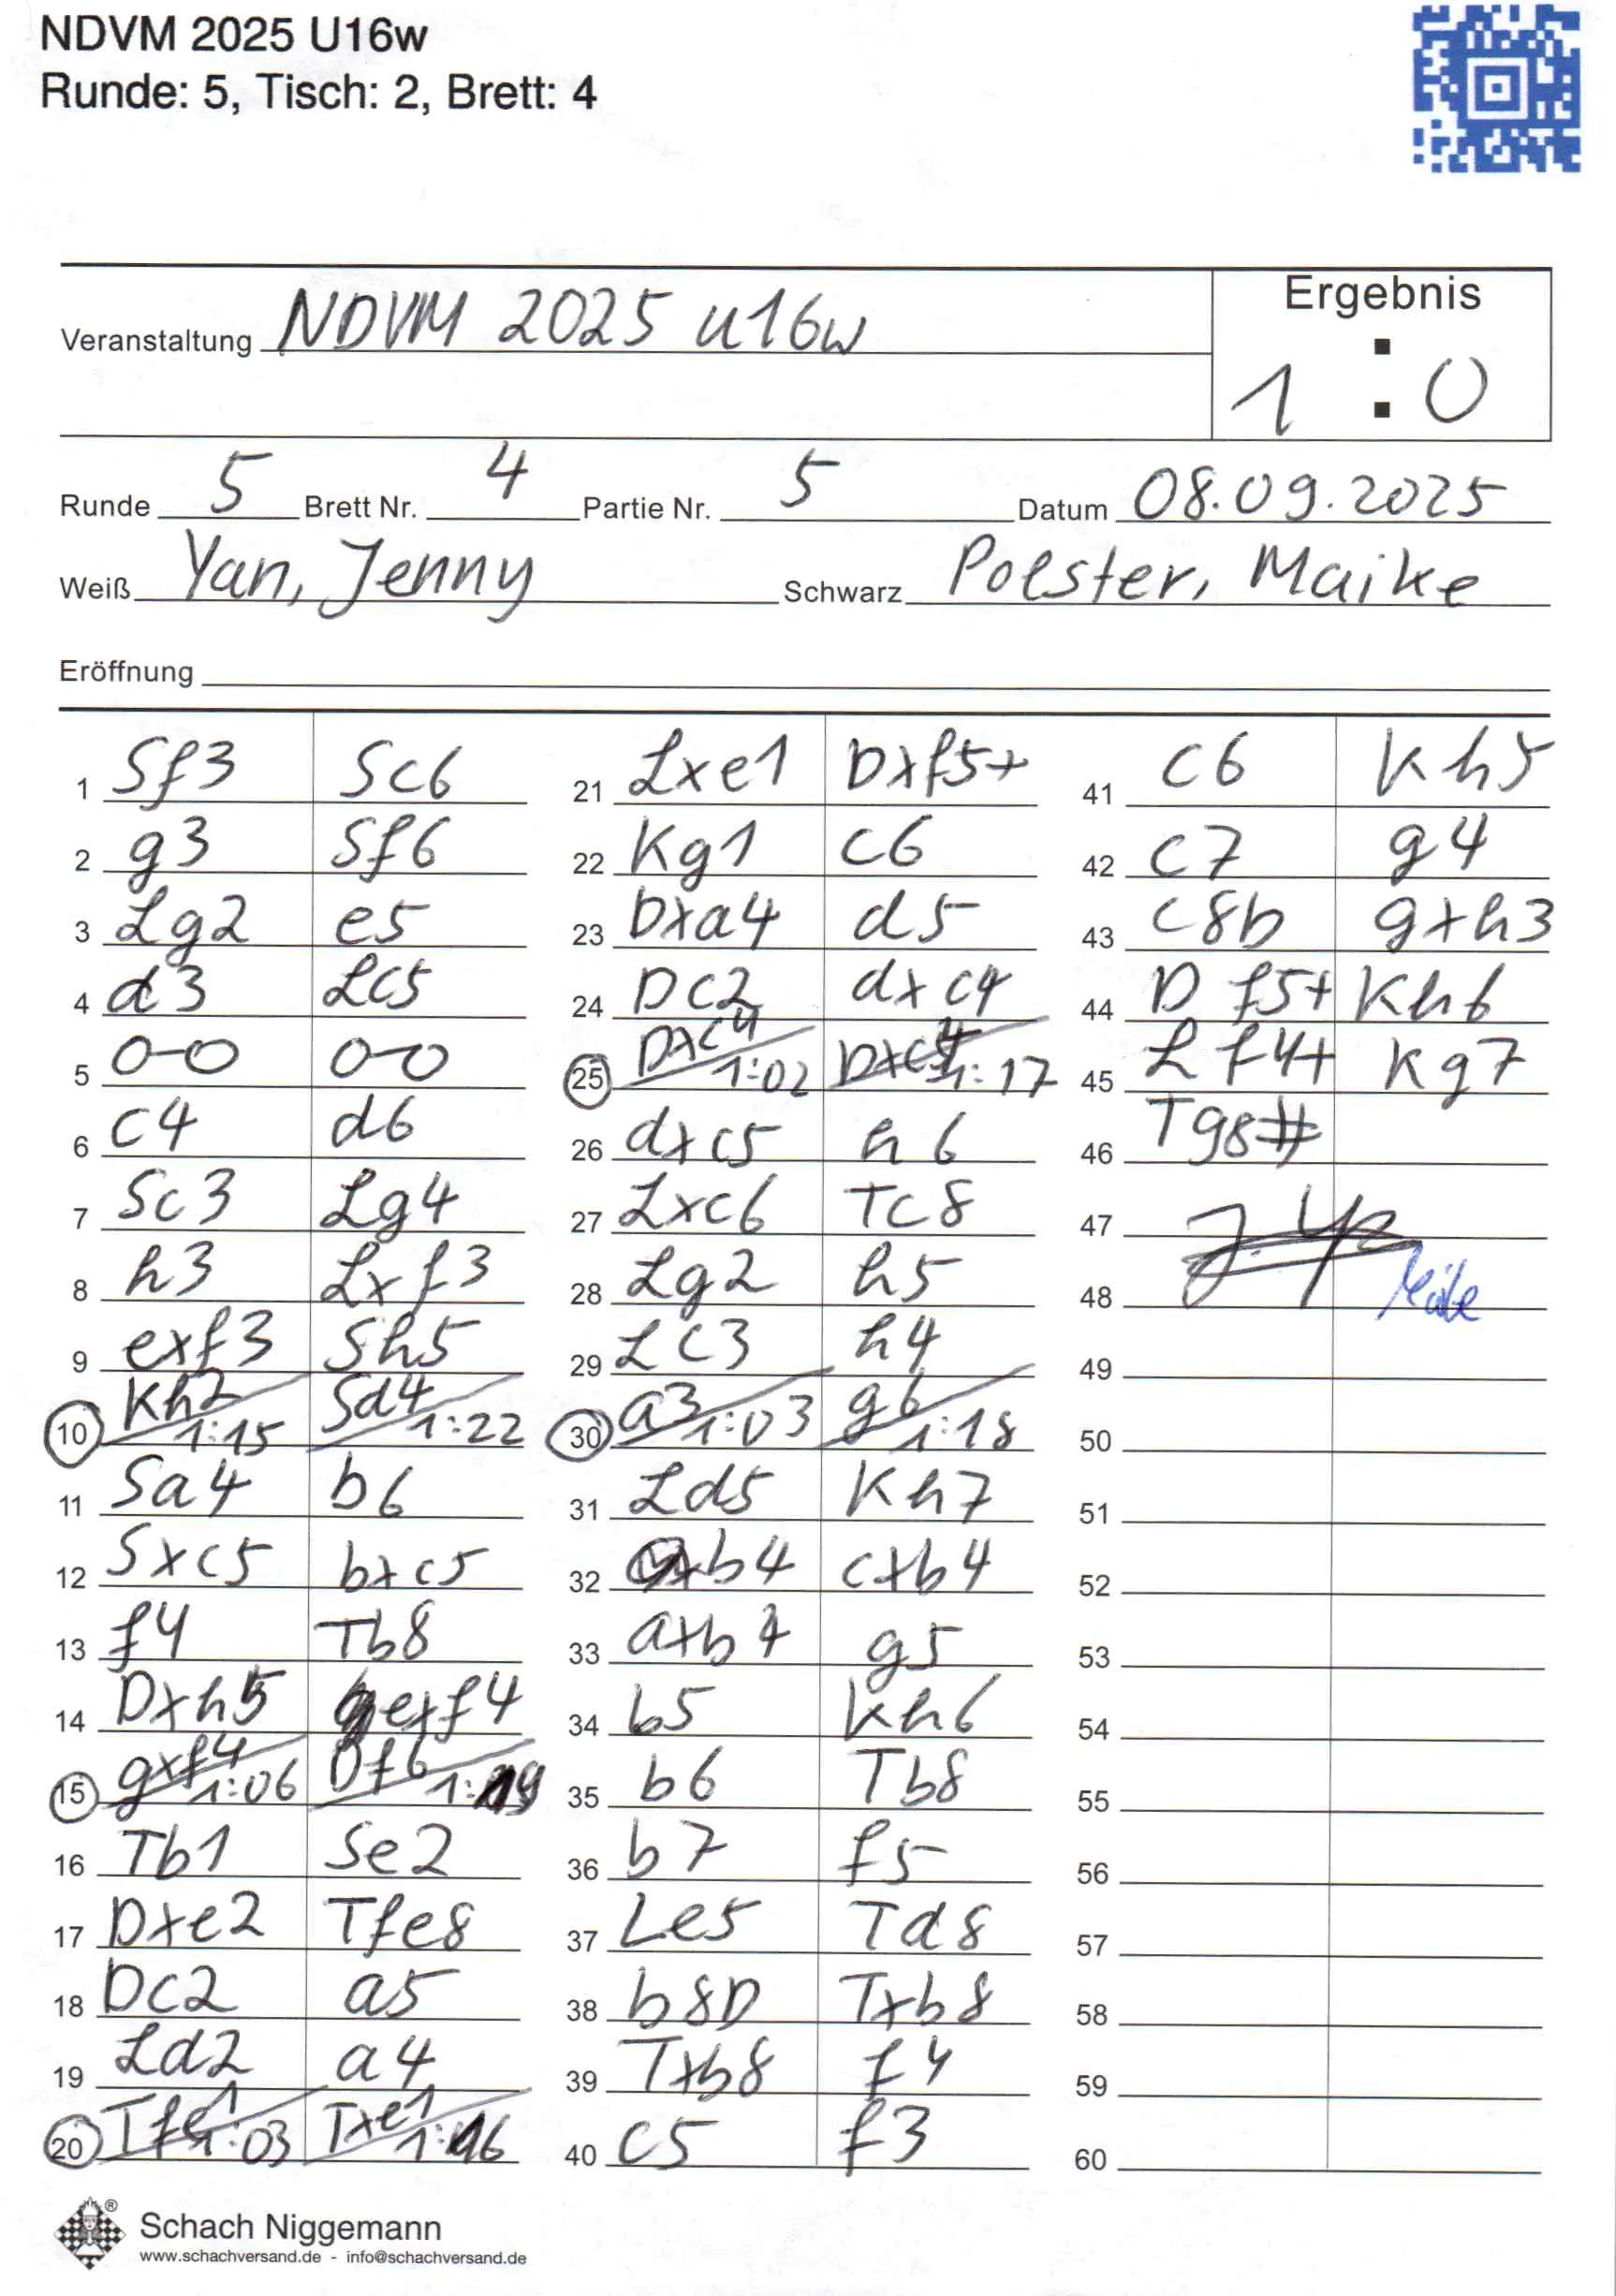 NDVM 2025 U16w
Runde: 5, Tisch: 2, Brett: 4
Veranstaltung NDVM 2025 u16w
Ergebnis
1 : 0
Runde 5 Brett Nr. 4 Partie Nr. 5 Datum 08.09.2025
Weiß Yan, Jenny Schwarz Polster, Maike
Eröffnung
1 Sf3 Sc6
2 g3 Sf6
3 Lg2 e5
4 d3 Lc5
5 0-0 0-0
6 c4 d6
7 Sc3 Lg4
8 h3 Lxf3
9 exf3 Sh5
10 Kh2 1:15 Sd4 1:22
11 Sa4 b6
12 Sxc5 bxc5
13 f4 Tb8
14 Dxh5 exf4
15 gxf4 1:06 Df6 1:19
16 Tb1 Se2
17 Dxe2 Tfe8
18 Dc2 a5
19 Ld2 a4
20 Tfe1 1:03 Txe1 1:16
21 Lxe1 Dxf5+
22 Kg1 c6
23 Dxa4 d5
24 Dc2 dxc4
25 Dxc4 1:02 Dxc4 1:17
26 dxc5 h6
27 Lxc6 Tc8
28 Lg2 h5
29 LC3 h4
30 a3 1:03 g6 1:18
31 Ld5 Kh7
32 b4 cxb4
33 axb4 g5
34 b5 Kh6
35 b6 Tb8
36 b7 f5
37 Le5 Td8
38 b8D Txb8
39 Txb8 f4
40 c5 f3
41 c6 Kh5
42 c7 g4
43 c8b gxh3
44 D f5+ Kh6
45 L f4+ Kg7
46 Tg8#
47
48
49
50
51
52
53
54
55
56
57
58
59
60
® Schach Niggemann
www.schachversand.de - info@schachversand.de